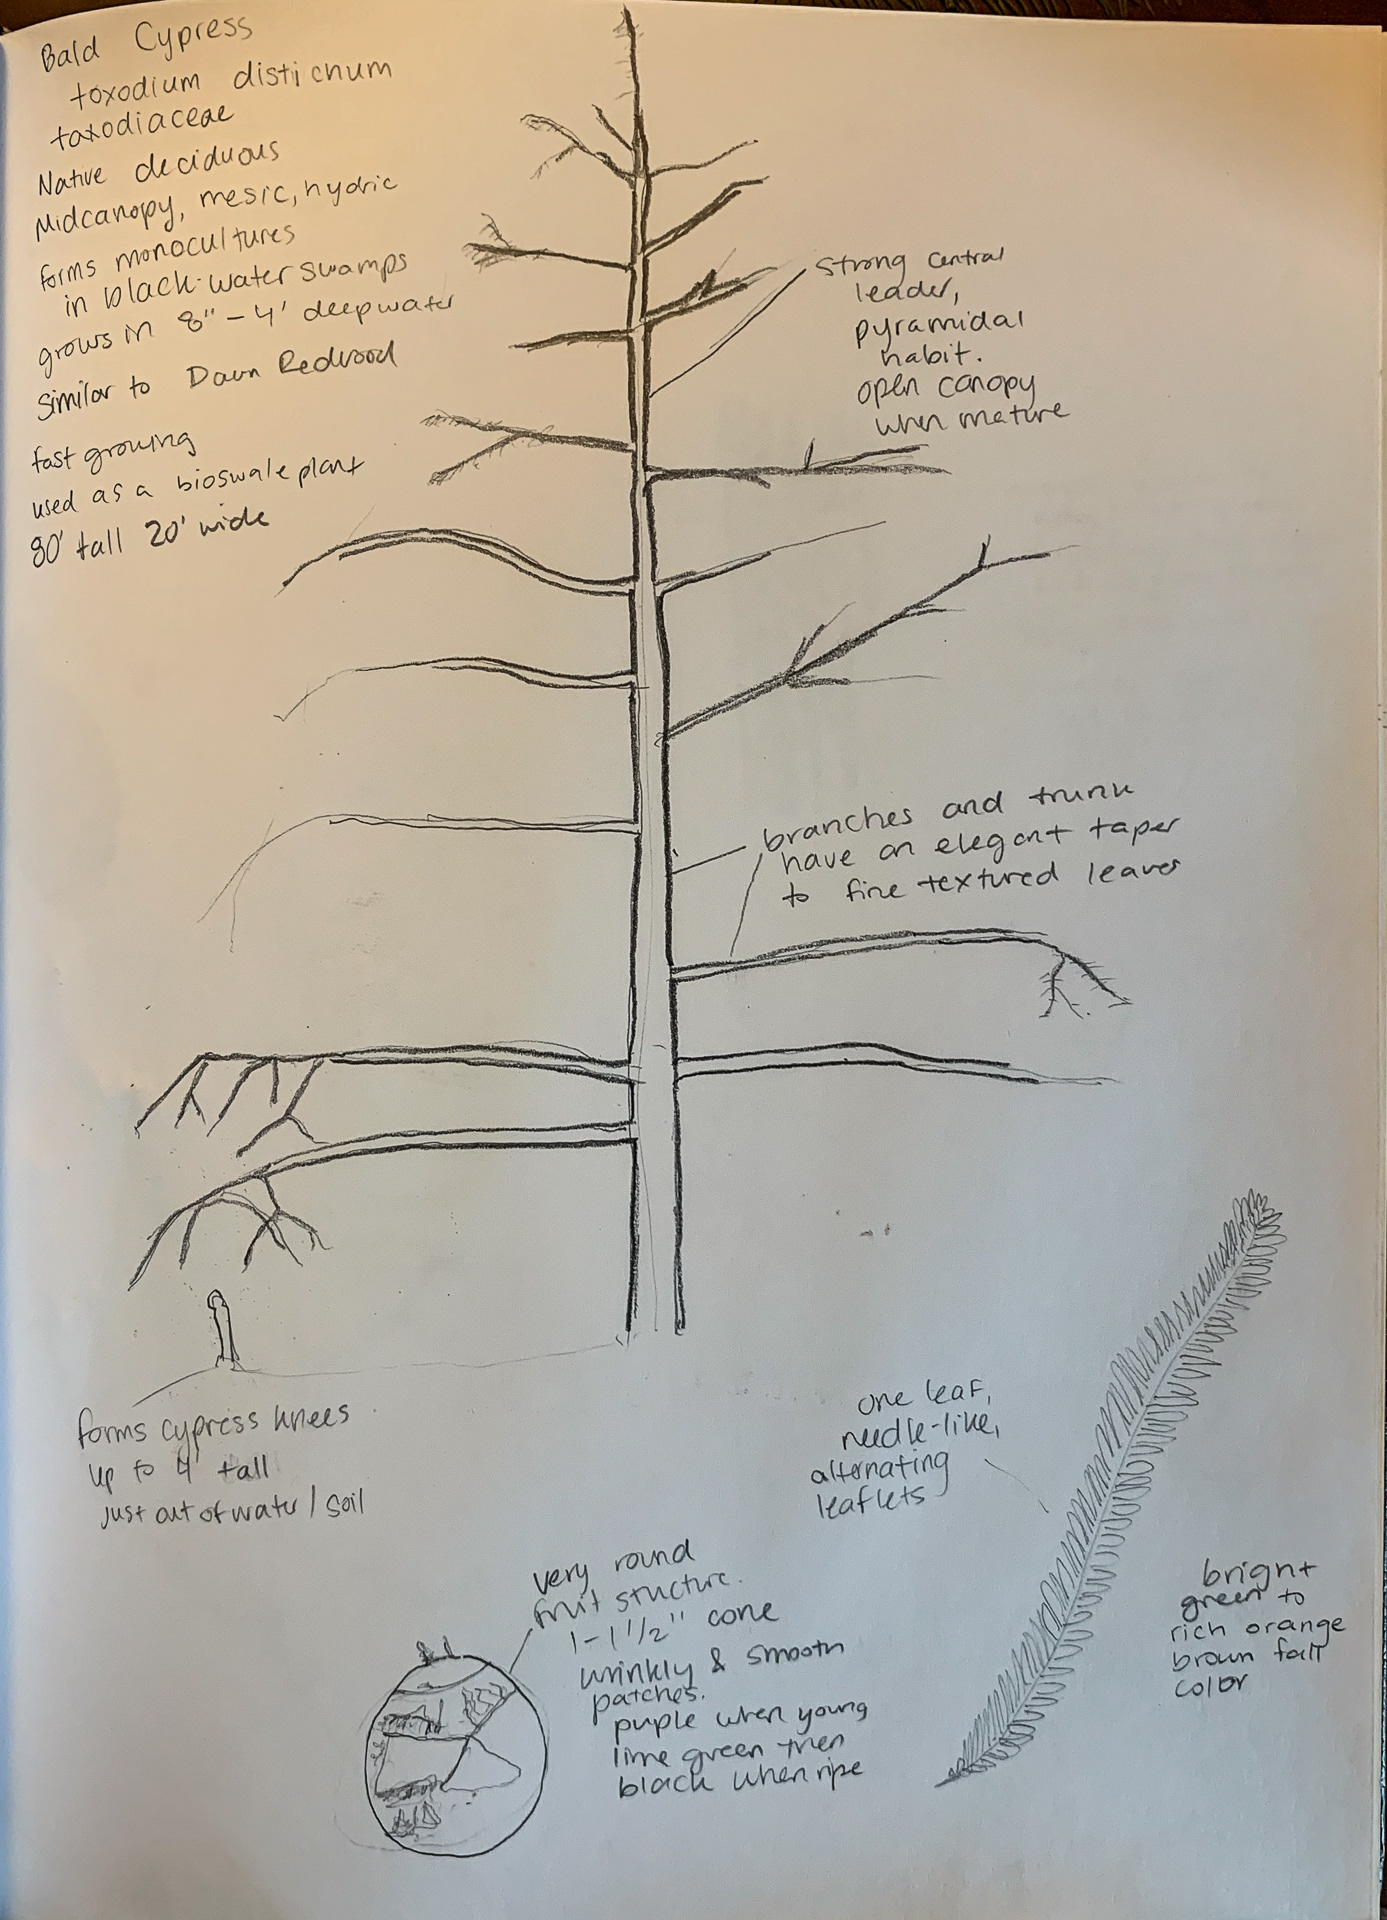 Bald Cypress
toxodium distichum
taxodiaceae
Native deciduous
Midcanopy, mesic, hydric
forms monocultures
in black-water swamps
grows in 8" - 4' deep water
similar to Dawn Redwood
fast growing
used as a bioswale plant
80' tall 20' wide
strong central
leader,
pyramidal
habit.
open canopy
when mature
branches and trunk
have an elegant taper
to fine textured leaves
forms cypress knees
up to 4' tall
just out of water / soil
one leaf,
needle-like,
alternating
leaflets
very round
fruit stucture.
1-1 1/2" cone
wrinkly & smooth
patches.
puple when young
lime green then
black when ripe
bright
green to
rich orange
brown fall
color